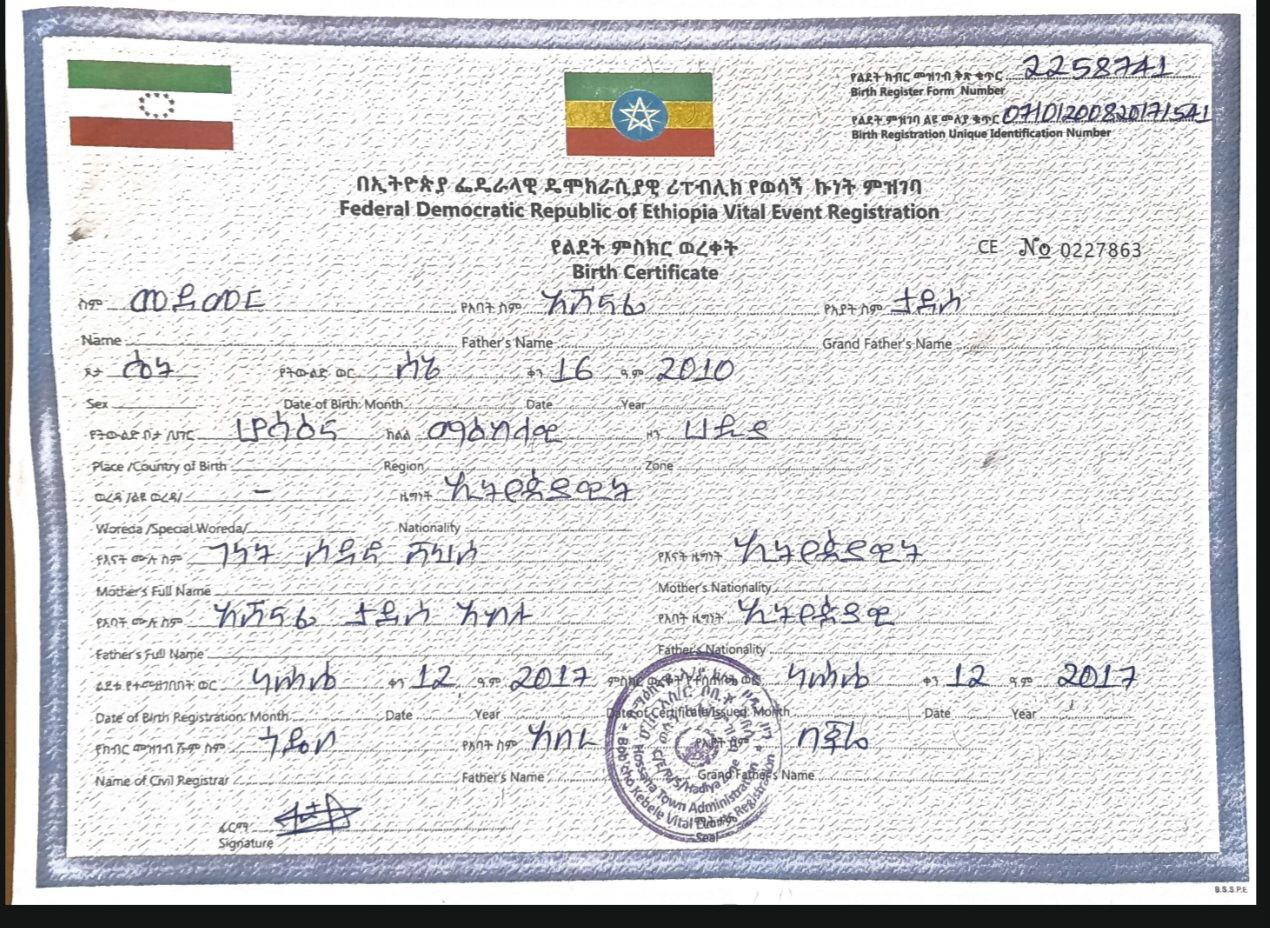 የልደት ክብር መዝገብ ቅጽ ቁጥር 2258741
Birth Register Form Number
የልደት ምዝገባ ልዩ መለያ ቁጥር 07101200820171541
Birth Registration Unique Identification Number
በኢትዮጵያ ፌዴራላዊ ዴሞክራሲያዊ ሪፐብሊክ የወሳኝ ኩነት ምዝገባ
Federal Democratic Republic of Ethiopia Vital Event Registration
የልደት ምስክር ወረቀት
CE No 0227863
Birth Certificate
ስም መደመር የአባት ስም አሸናፊ የአያት ስም ታደሰ
Name Father's Name Grand Father's Name
ጾታ ሴት የትውልድ ወር ሰኔ ቀን 16 ዓ.ም 2010
Sex Date of Birth: Month Date Year
የትውልድ ቦታ /ሀገር ሆሳዕና ክልል ማዕከላዊ ዞን ሀዲያ
Place /Country of Birth Region Zone
ወረዳ /ልዩ ወረዳ/ – ዜግነት ኢትዮጵያዊት
Woreda /Special Woreda/ Nationality
የእናት ሙሉ ስም ገነት የእናት ዜግነት ኢትዮጵያዊት
Mother's Full Name Mother's Nationality
የአባት ሙሉ ስም አሸናፊ ታደሰ የአባት ዜግነት ኢትዮጵያዊ
Father's Full Name Father's Nationality
ልደቱ የተመዘገበበት ወር ቀን 12 ዓ.ም 2017 ቀን 12 ዓ.ም 2017
Date of Birth Registration: Month Date Year Date of Certificate Issued: Month Date Year
የክብር መዝገብ ሹም ስም የአባት ስም የአያት ስም
Name of Civil Registrar Father's Name Grand Father's Name
ፊርማ
Signature
Seal
Hossana Town Administration
Bobicho Kebele Vital Events Registration
B.S.S.P.E